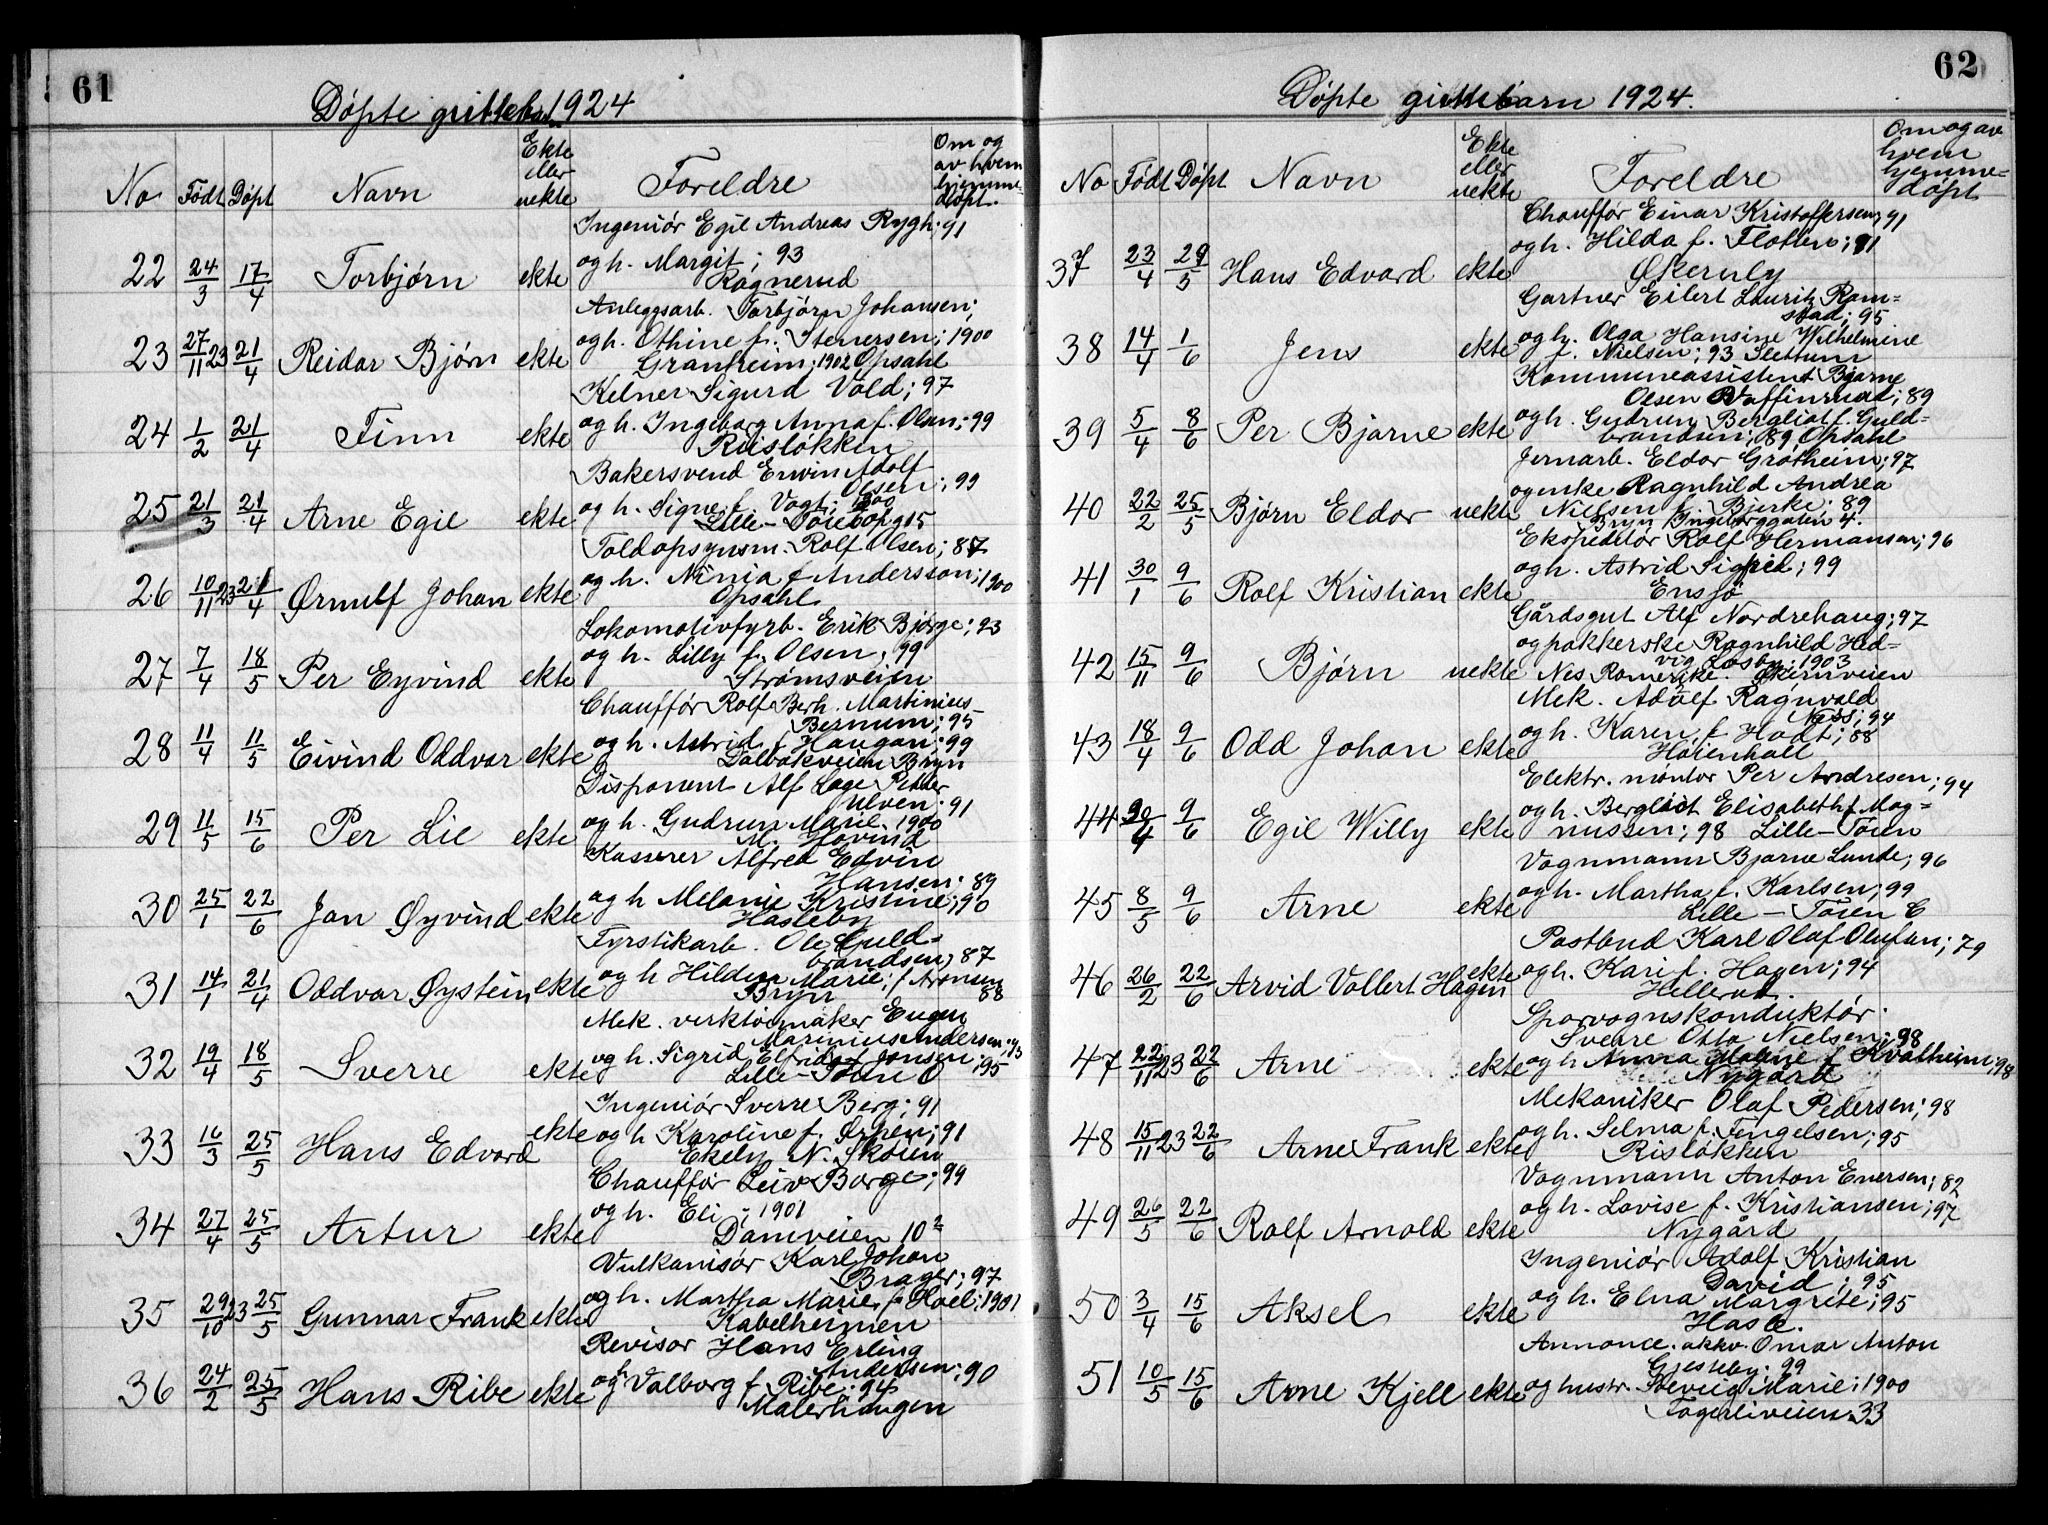 61
Døpte guttebarn 1924
No Født Døpt Navn Ekte eller uekte Foreldre Om og av hvem hjemmedøpt.
Ingeniør Egil Andreas Rygh; 91
22 24/3 17/4 Torbjørn ekte og h. Margit; 93
Ragnerud
Anleggsarb. Torbjørn Johansen;
23 27/11 23 21/4 Reidar Bjørn ekte og h. Othine f. Stenersen; 1900
Granheim; 1902 Opsahl
Kelner Sigurd Vold; 97
24 1/2 21/4 Finn ekte og h. Ingeborg Anna f. Olsen; 99
Riisløkken
Bakersvend Erwin Adolf
Olsen; 99
25 21/3 21/4 Arne Egil ekte og h. Signe f. Vogt; 1900
Lille-Tøienbg 15
Toldopsynsm. Rolf Olsen; 87
26 10/11 23 21/4 Ørnulf Johan ekte og h. Ninia f. Andersson; 1900
Opsahl
Lokomotivfyrb. Erik Bjørge; 93
27 7/4 18/5 Per Eyvind ekte og h. Lilly f. Olsen; 99
Strømsveien
Chauffør Rolf Berh. Martinius
Bernum; 95
28 11/4 11/5 Eivind Oddvar ekte og h. Astrid f. Haugan; 99
Dalbakveien Bryn
Disponent Alf Lage Petter
Ulven; 91
29 11/5 15/6 Per Lie ekte og h. Gudrun Marie. 1900
M. Hovind
Kasserer Alfred Edvin
Hansen; 89
30 25/1 22/6 Jan Øyvind ekte og h Melanie Kristine; 90
Hasleby
Fyrstikarb. Ole Guld-
brandsen; 87
31 14/1 21/4 Oddvar Øystein ekte og h Hildur Marie; f Aronsen
Bryn 88
Mek. verktøimaker Eugen
Marinius Andersen; 93
32 19/4 18/5 Sverre ekte og h. Sigrid Elfrida f Jonsen; 95
Lille-Tøien O
Ingeniør Sverre Berg; 91
33 16/3 25/5 Hans Edvard ekte og h Karoline f. Ørpen; 91
Ekely N. Skøien
Chauffør Leiv Borge; 99
34 27/4 25/5 Artur ekte og h. Eli; 1901
Damveien 10²
Vulkanisør Karl Johan
Brager; 97
35 29/10 23 25/5 Gunnar Frank ekte og h. Martha Marie f Hoel; 1901
Kabelhermen
Revisor Hans Erling
Andersen; 90
36 24/2 25/5 Hans Ribe ekte og Valborg f Ribe; 94
Malerhaugen
62
Døpte guttebarn 1924.
No Født Døpt Navn Ekte eller uekte Foreldre Om og av hvem hjemmedøpt
Chauffør Einar Kristoffersen; 91
37 23/4 29/5 Hans Edvard ekte og h. Hilda f. Floten; 91
Økernly
Gartner Eilert Lauritz Ram-
stad; 95
38 14/4 1/6 Jens ekte og h. Olga Hansine Wilhelmine
f. Nielsen; 93 Slettum
Kommuneassistent Bjarne
Olsen Vaffinrud; 89
39 5/4 8/6 Per Bjarne ekte og h. Gudrun Bergliot f. Guld-
brandsen; 89 Opsahl
Jernarb. Eldor Grøtheim; 97
40 22/2 25/5 Bjørn Eldor uekte og enke Ragnhild Andrea
Nielsen f. Bjerke; 89
Bryn Ingeborggaten 4.
Ekspeditør Rolf Hermansen; 96
41 30/1 9/6 Rolf Kristian ekte og h. Astrid Sigrid; 99
Ensjø
Gårdsgut Alf Nordrehaug; 97
42 15/11 9/6 Bjørn uekte og pakkerske Ragnhild Hed-
vig Losby; 1903
Nes Romerike. Økernveien
Mek. Adolf Ragnvald
Næss; 94
43 18/4 9/6 Odd Johan ekte og h. Karen f. Hodt; 88
Høienhall
Elektr. montør Per Andresen; 94
44 30/4 9/6 Egil Willy ekte og h. Bergliot Elisabeth f. Mag-
nussen; 98 Lille-Tøien
Vognmann Bjarne Lunde; 96
45 8/5 9/6 Arne ekte og h. Martha f. Karlsen; 99
Lille-Tøien C
Postbud Karl Olaf Olufsen; 79
46 26/2 22/6 Arvid Vollert Hagen ekte og h. Kari f. Hagen; 94
Hellerud.
Sporvognskonduktør
Sverre Otto Nielsen; 98
47 22/11 23 22/6 Arne ekte og h Anna Malene f Kvalheim; 98
Nygård
Mekaniker Olaf Pedersen; 98
48 15/11 23 22/6 Arne Frank ekte og h. Selma f. Fingelsen; 95
Risløkken
Vognmann Anton Enersen; 82
49 26/5 22/6 Rolf Arnold ekte og h. Lovise f. Kristiansen; 97
Nygård
Ingeniør Adolf Kristian
David; 95
50 3/4 15/6 Aksel ekte og h. Elna Margrete; 95
Hasle.
Annonce. akkv. Omar Anton
Gjesteby; 99
51 10/5 15/6 Arne Kjell ekte og hustr. Solveig Marie; 1900
Fagerliveien 33